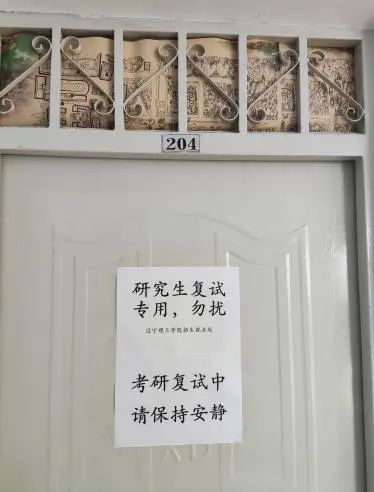 204
研究生复试
专用，勿扰
辽宁理工学院招生就业处
考研复试中
请保持安静